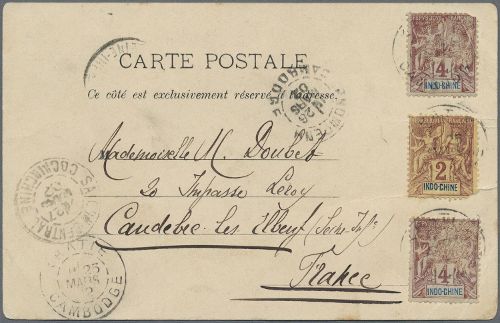 CARTE POSTALE
Ce côté est exclusivement réservé à l'adresse.
Mademoiselle M. Doubet
20 Impasse Leroy
Caudebec-les-Elbeuf (Seine Infre)
France
4
INDO-CHINE
2
INDO-CHINE
4
INDO-CHINE
PNOM-PENH
CAMBODGE
SAIGON CENTRAL
COCHINCHINE
25
MARS
CAMBODGE